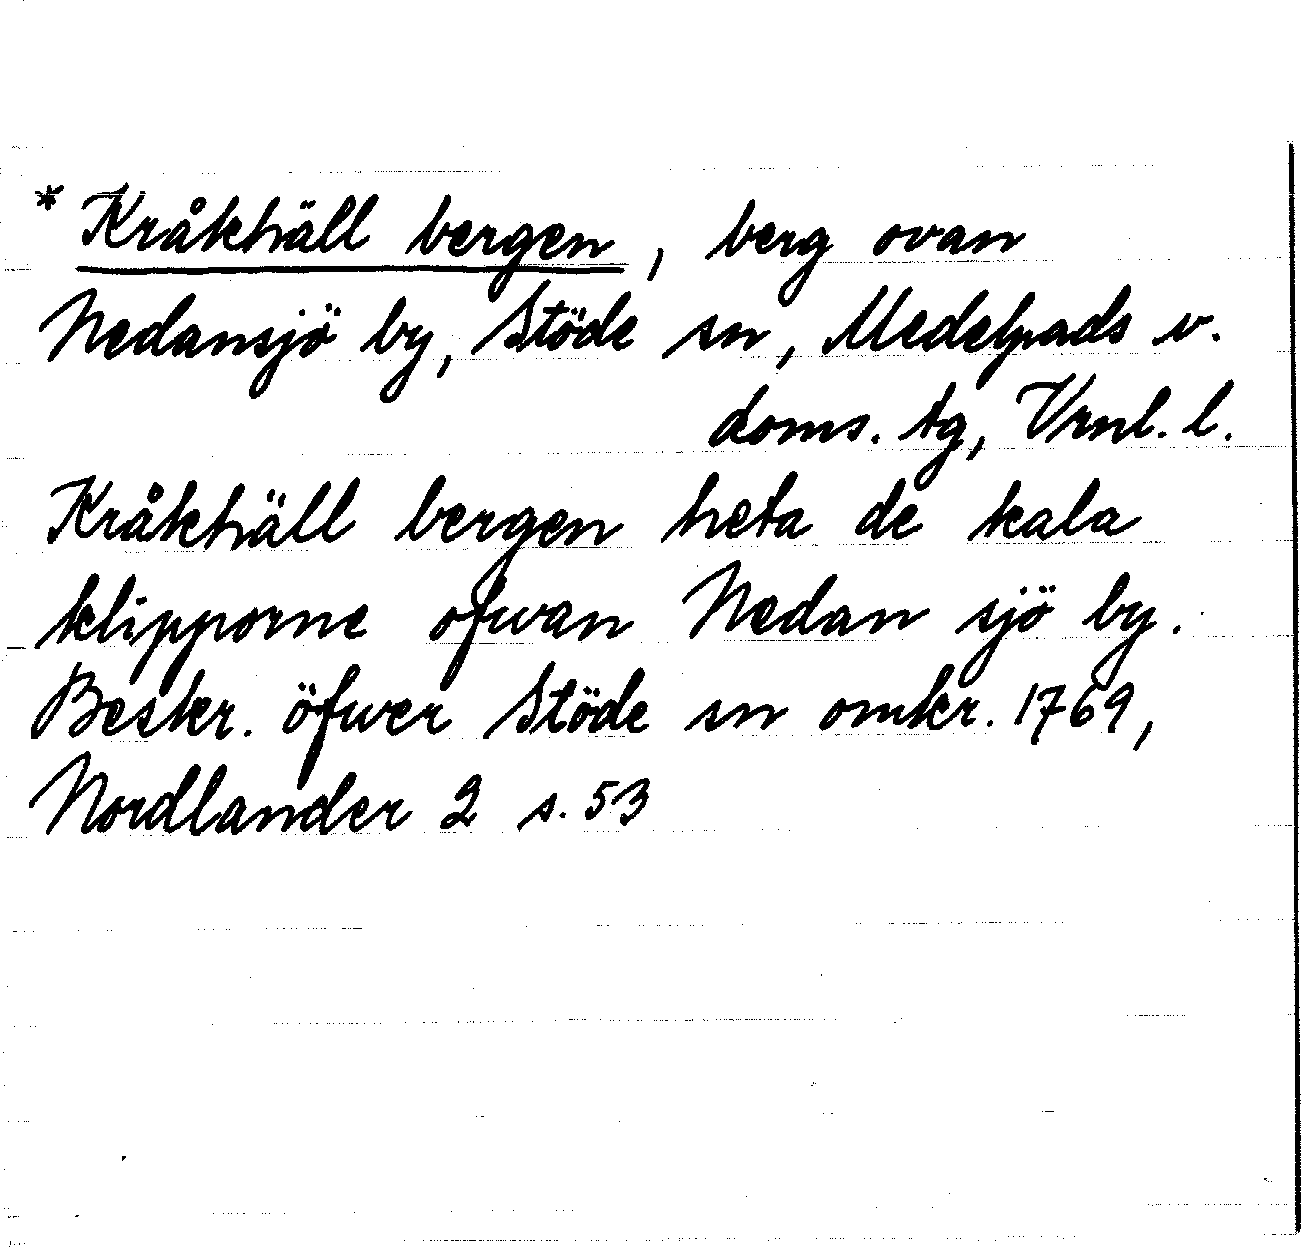 * Kråkhäll bergen, berg ovan
Nedansjö by, Stöde sn, Medelpads v.
doms. tg, Vrnl. l.
Kråkhäll bergen heta de kala
klipporne ofwan Nedan sjö by.
Beskr. öfwer Stöde sn omkr. 1769,
Nordlander 2 s. 53